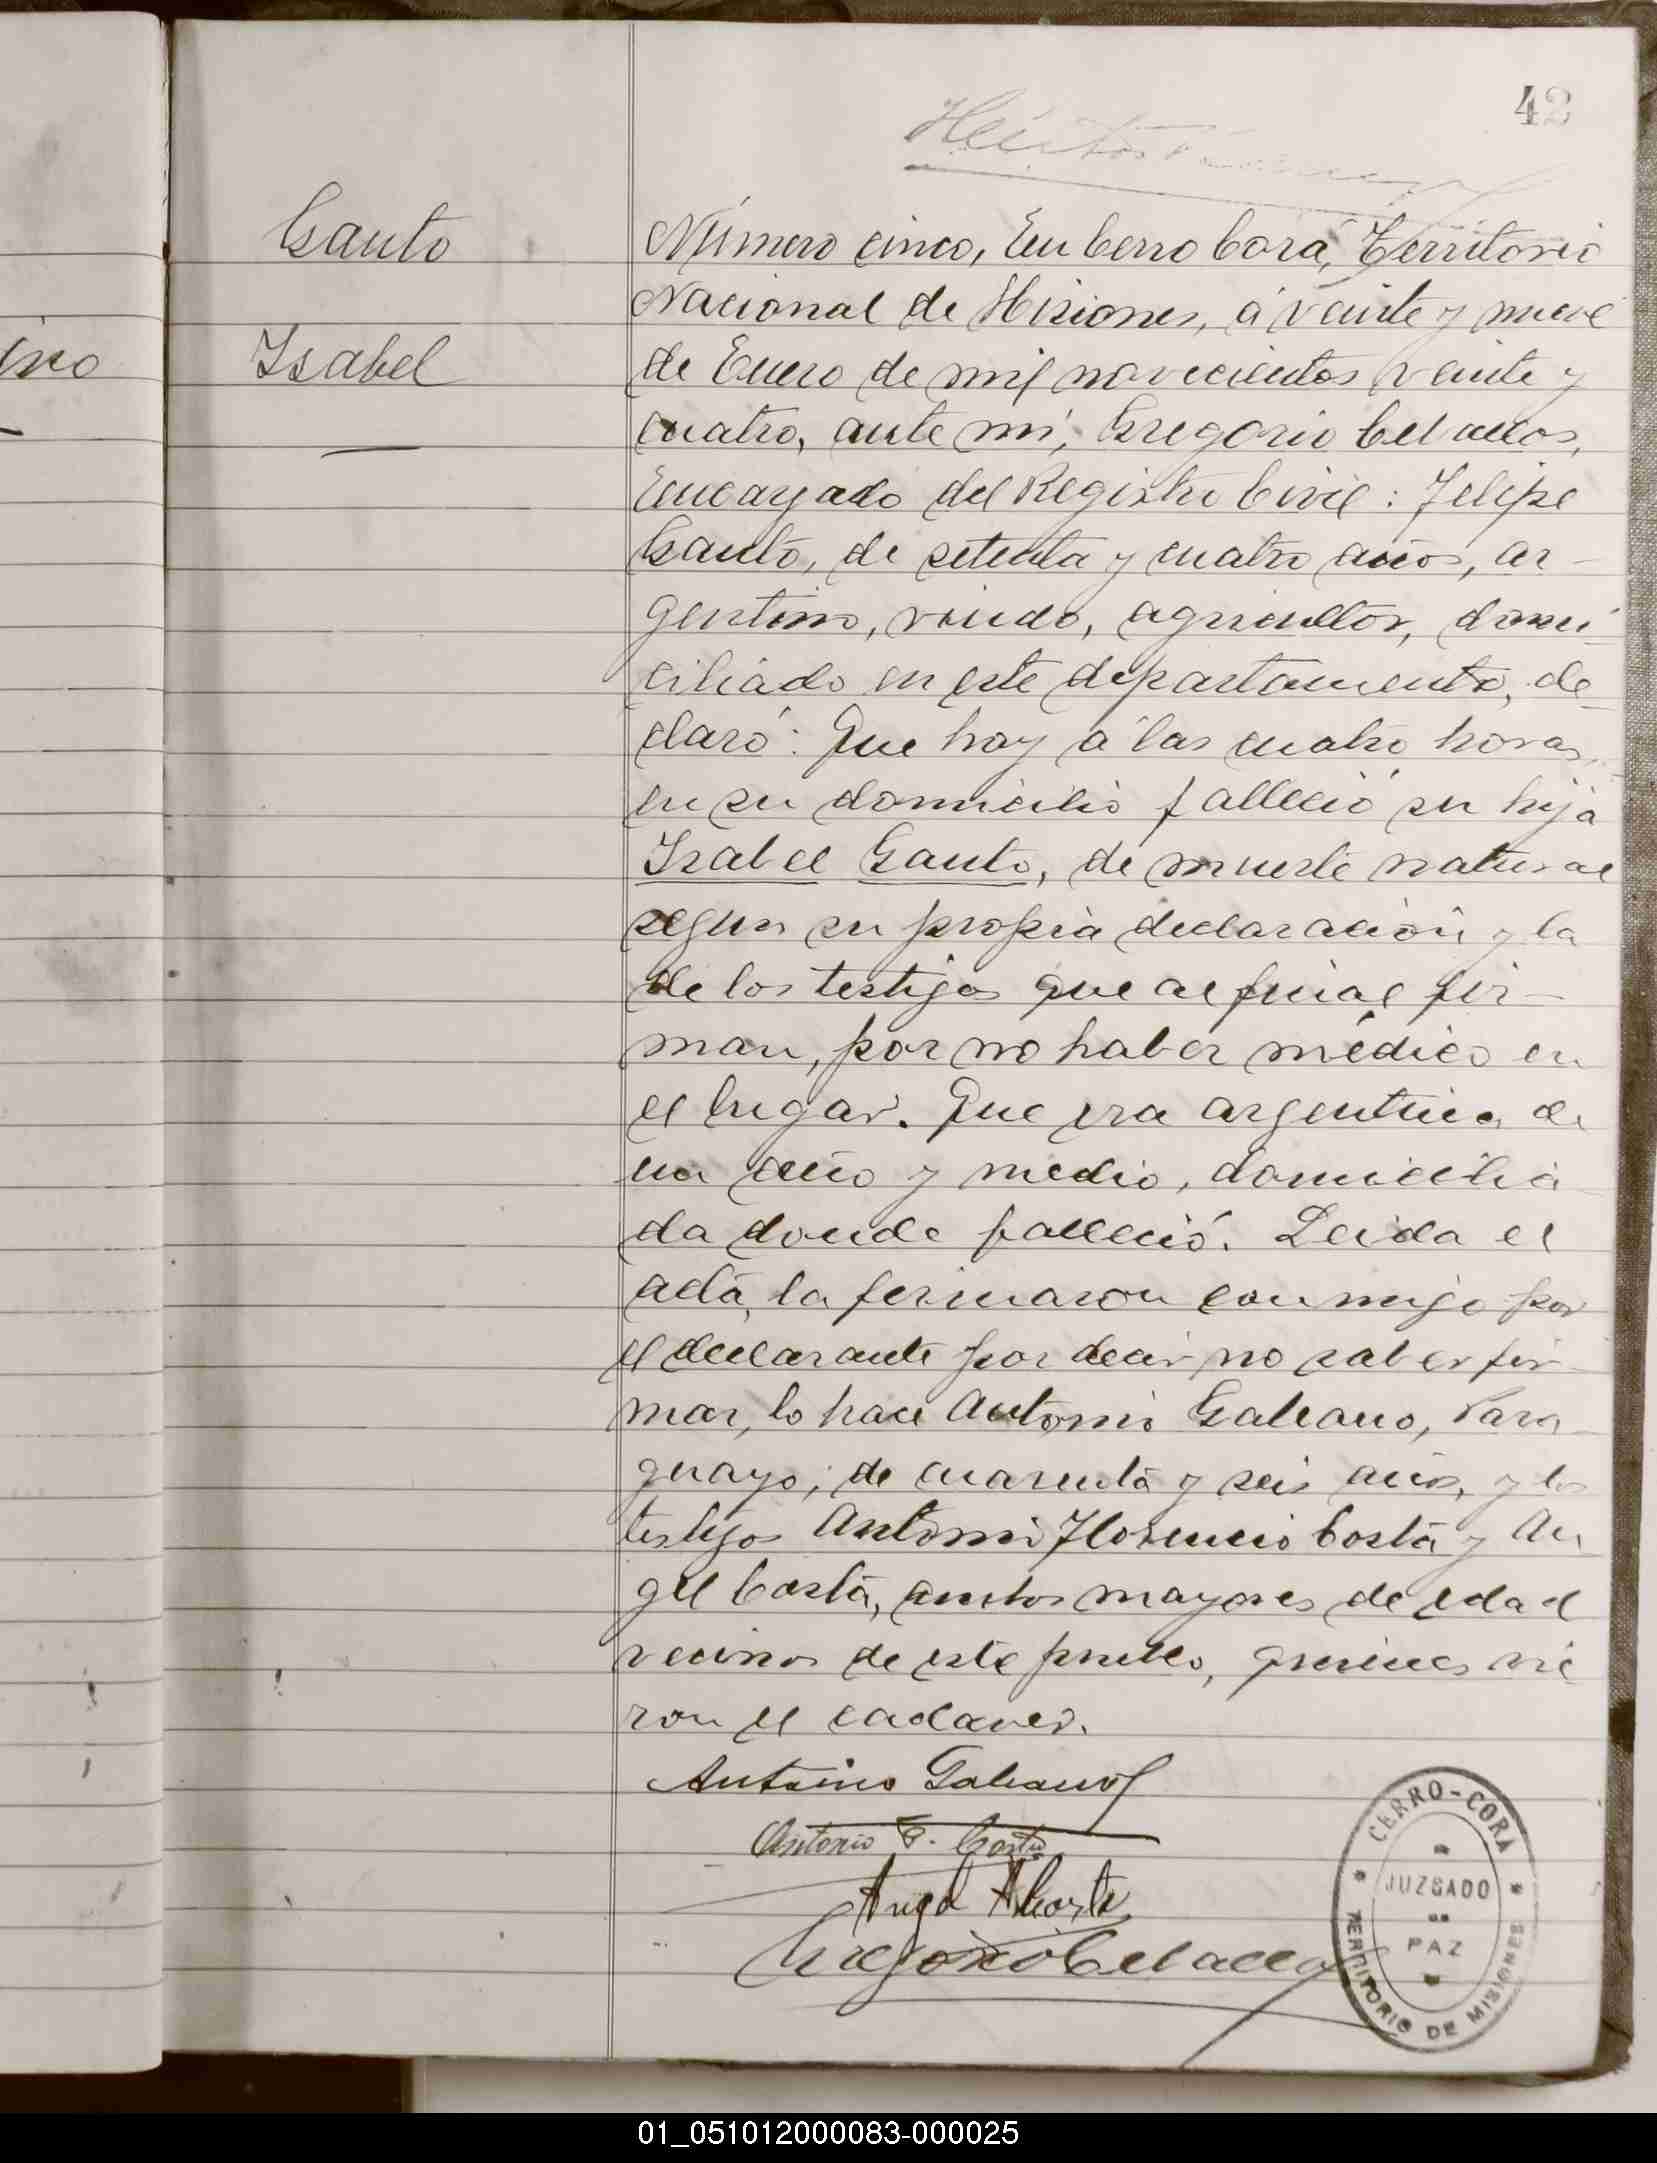 42
Gauto
Isabel
Número cinco, En Cerro Corá, Territorio
Nacional de Misiones, á veinte y nueve
de Enero de mil novecientos veinte y
cuatro, ante mí, Gregorio
Encargado del Registro Civil: Felipe
Gauto, de setenta y cuatro años, ar-
gentino, viudo, agricultor, domi-
ciliado en este departamento, de-
claró: Que hoy á las cuatro horas,
en su domicilio falleció su hija
Isabel Gauto, de muerte natural
segun su propia declaración y la
de los testigos que al final fir-
man, por no haber médico en
el lugar. Que era argentina, de
un año y medio, domicilia-
da donde falleció. Leida el
acta, la firmaron conmigo por
el declarante por decir no saber fir-
mar, lo hace Antonio Galeano, Para-
guayo, de cuarenta y seis años, y los
testigos Antonio Florencio Costa y An
gel Costa, ambos mayores de edad
vecinos de este pueblo, quienes vie
ron el cadaver.
Antonio Galeano
Antonio F. Costa
Angel A Costa
Gregorio
CERRO-CORA
JUZGADO
DE
PAZ
TERRITORIO DE MISIONES
ino
01_051012000083-000025